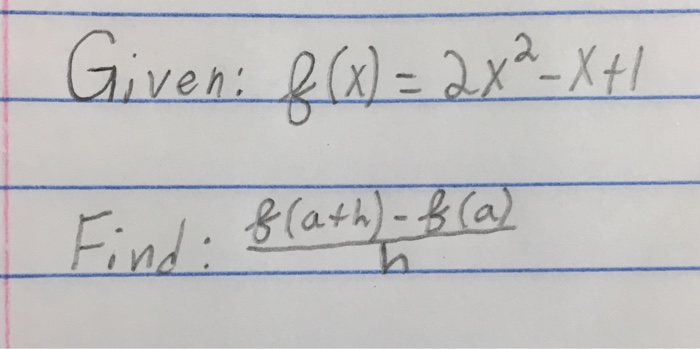 Given: f(x) = 2x² - x + 1
Find: f(a+h) - f(a)
h